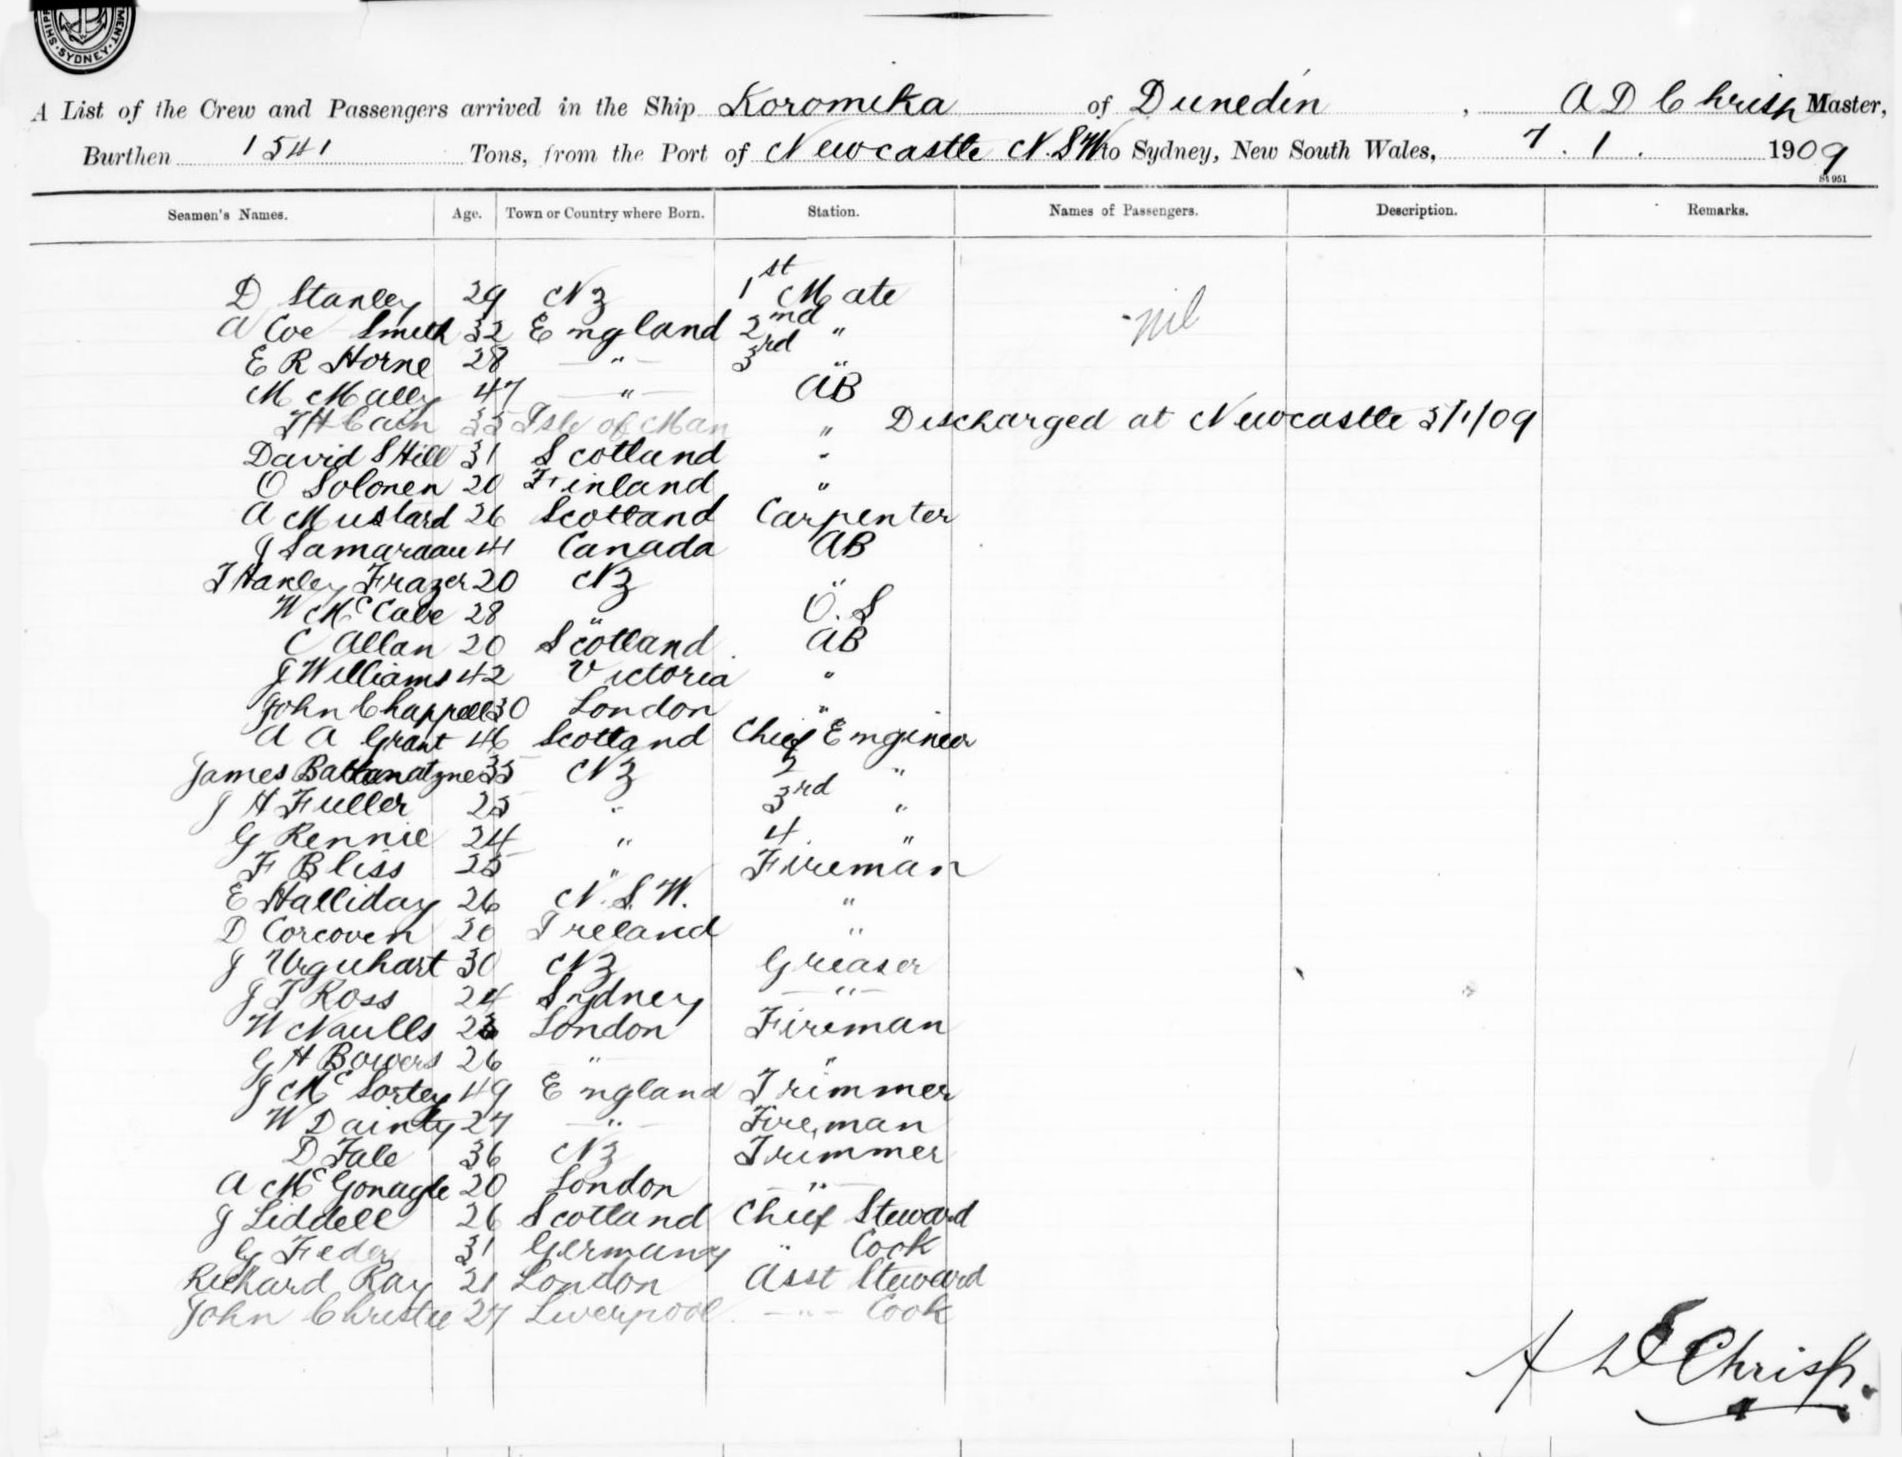 SYDNEY
A List of the Crew and Passengers arrived in the Ship Koromika of Dunedin, A D Chrisp Master,
Burthen 1541 Tons, from the Port of Newcastle N.S.W to Sydney, New South Wales, 7.1. 1909
St 951
Seamen's Names. Age. Town or Country where Born. Station. Names of Passengers. Description. Remarks.
D Stanley 29 NZ 1st Mate nil
A Coe Smith 32 England 2nd "
E R Horne 28 " 3rd "
M McNally 47 " AB
T H Cain 35 Isle of Man " Discharged at Newcastle 5/1/09
David S Hill 31 Scotland "
O Solonen 20 Finland "
A Mustard 26 Scotland Carpenter
J Samardau 41 Canada AB
T Hanley Frazer 20 NZ "
W McCabe 28 " O.S
C Allan 20 Scotland AB
J Williams 42 Victoria "
John Chappell 30 London "
A A Grant 46 Scotland Chief Engineer
James 35 NZ 2 "
J H Fuller 25 " 3rd "
G Rennie 24 " 4 "
F Bliss 25 " Fireman
E Halliday 26 N.S.W. "
D Corcoven Ireland "
J Urquhart 30 NZ Greaser
J T Ross 24 Sydney "
W Naulls London Fireman
G H Bowers 26 " "
J McSorley 49 England Trimmer
W Dainty 27 " Fireman
D Fale 36 NZ Trimmer
A McGonagle 20 London "
J Liddell 26 Scotland Chief Steward
G Feder 31 Germany " Cook
Richard Ray 21 London Asst Steward
John Christie 27 Liverpool " Cook
Chrisp.